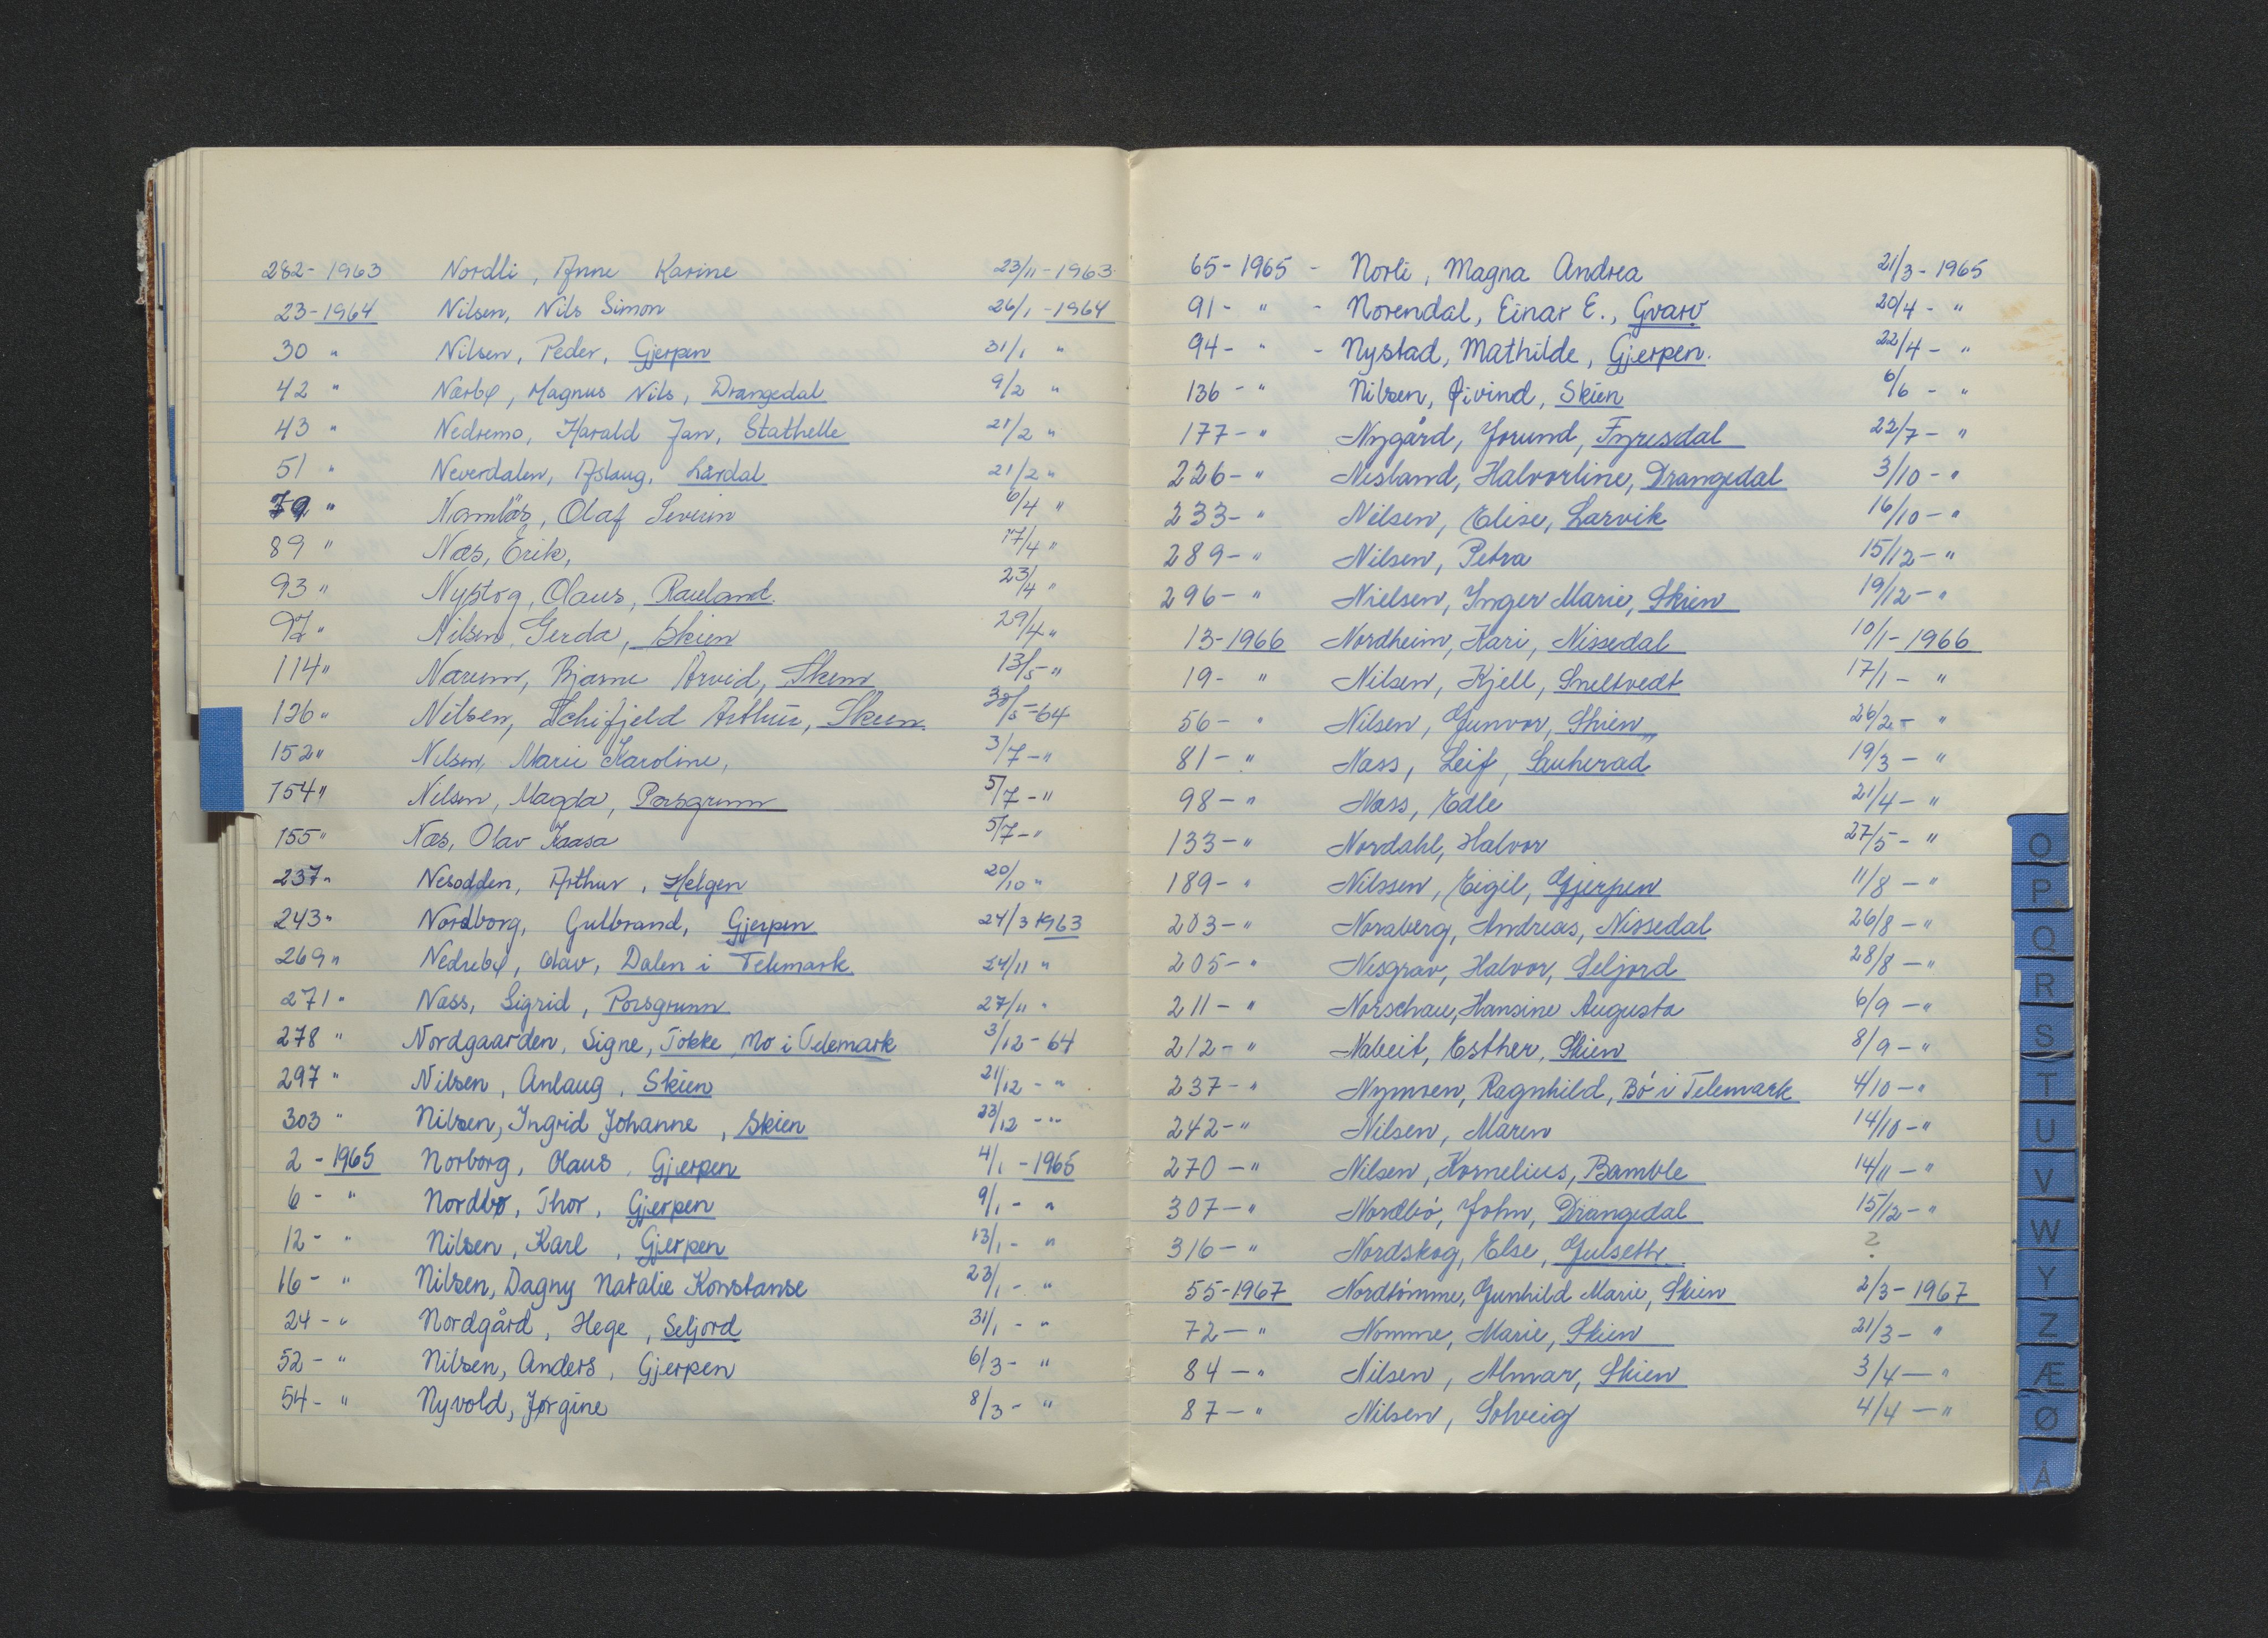 282- 1963 Nordli, Anne Karine 23/11 - 1963
23-1964 Nilsen, Nils Simon 26/1 -1964
30 " Nilsen, Peder, Gjerpen 31/1 "
42 " Nærbø, Magnus Nils, Drangedal 9/2 "
43 " Nedremo, Harald Jan, Stathelle 21/2 "
51 " Neverdalen, Aslaug, Lårdal 21/2 "
79 " Namløs, Olaf Severin 6/4 "
89 " Næs, Erik, 17/4 "
93 " Nystog, Olaus, Rauland. 23/4 "
97 " Nilsen, Gerda, Skien 29/4 "
114 " Narum, Bjarne Arvid, Skien 13/5 - "
126 " Nilsen, Schifjeld Arthur, Skien. /5 -64
152 " Nilsen, Marie Karoline, 3/7 - "
154 " Nilsen, Magda, Porsgrunn 5/7 - "
155 " Næs, Olav Kaasa 5/7 - "
237 " Nesodden, Arthur, Helgen 20/10 "
243 " Nordborg, Gulbrand, Gjerpen 24/3 1963
269 " Nedrebø, Olav, Dalen i Telemark 24/11 "
271 " Næss, Sigrid, Porsgrunn 27/11 "
278 " Nordgaarden, Signe, Tokke, Mo i Telemark 3/12 - 64
297 " Nilsen, Anlaug, Skien 21/12 - "
303 " Nilsen, Ingrid Johanne, Skien 23/12 - "
2 - 1965 Norborg, Olaus, Gjerpen 4/1 - 1965
6 - " Nordbø, Thor, Gjerpen 9/1 - "
12 - " Nilsen, Karl, Gjerpen 13/1 - "
16 - " Nilsen, Dagny Natalie Konstanse 23/1 - "
24 - " Nordgård, Hege, Seljord 31/1 - "
52 - " Nilsen, Anders, Gjerpen 6/3 - "
54 - " Nyvold, Jørgine 8/3 - "
65 - 1965 - Norli, Magna Andrea 21/3 - 1965
91 - " - Norendal, Einar E., Gvarv 20/4 - "
94 - " - Nystad, Mathilde, Gjerpen. 22/4 - "
136 - " Nilsen, Øivind, Skien 6/6 - "
177 - " Nygård, Jorund, Fyresdal 22/7 - "
226 - " Nesland, Halvorline, Drangedal 3/10 - "
233 - " Nilsen, Elise, Larvik 16/10 - "
289 - " Nilsen, Petra 15/12 - "
296 - " Nielsen, Inger Marie, Skien 19/12 - "
13-1966 Nordheim, Kari, Nissedal 10/1 - 1966
19 - " Nilsen, Kjell, Sneltvedt 17/1 - "
56 - " Nilsen, Gunvor, Skien 26/2 - "
81 - " Næss, Leif, Sauherad 19/3 - "
98 - " Næss, Edle 21/4 - "
133 - " Nordahl, Halvor 27/5 - "
189 - " Nilssen, Eigil, Gjerpen 11/8 - "
203 - " Noraberg, Andreas, Nissedal 26/8 - "
205 - " Nesgrav, Halvor, Seljord 28/8 - "
211 - " Norschau, Hansine Augusta 6/9 - "
212 - " Nabeit, Esther, Skien 8/9 - "
237 - " Nymoen, Ragnhild, Bö i Telemark 4/10 - "
242 - " Nilsen, Maren 14/10 - "
270 - " Nilsen, Kornelius, Bamble 14/11 - "
307 - " Nordbö, John, Drangedal 15/12 - "
316 - " Nordskog, Else, Gulseth. ?
55-1967 Nordtömme, Gunhild Marie, Skien 2/3 - 1967
72 - " Nomme, Marie, Skien 21/3 - "
84 - " Nilsen, Almar, Skien 3/4 - "
87 - " Nilsen, Solveig 4/4 - "
O
P
Q
R
S
T
U
V
W
Y
Z
Æ
Ø
Å